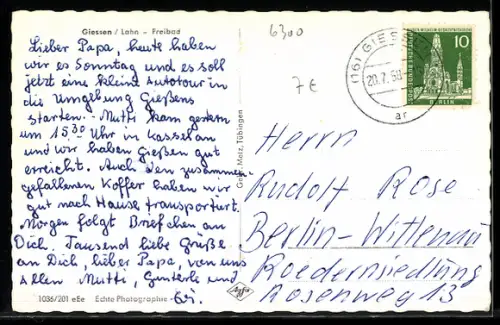 Giessen / Lahn - Freibad
6300
7€
Lieber Papa, heute haben
wir es Sonntag und es soll
jetzt eine kleine Autotour in
die Umgebung Gießens
starten. Mutti kam gestern
um 15.30 Uhr in Kassel an
und wir haben Gießen gut
erreicht. Auch den zusammen-
gefallenen Koffer haben wir
gut nach Hause transportiert.
Morgen folgt Briefchen an
Dich. Tausend liebe Grüße
an Dich lieber Papa, von uns
allen Mutti, Günterle und
1036/201 eEe Echte Photographie
Agfa
Gebr. Metz, Tübingen
(16) GIES
20.7.58
ar
10
DEUTSCHE BUNDESPOST
BERLIN
Herrn
Rudolf Rose
Berlin-Wittenau
Roedernsiedlung
Rosenweg 13